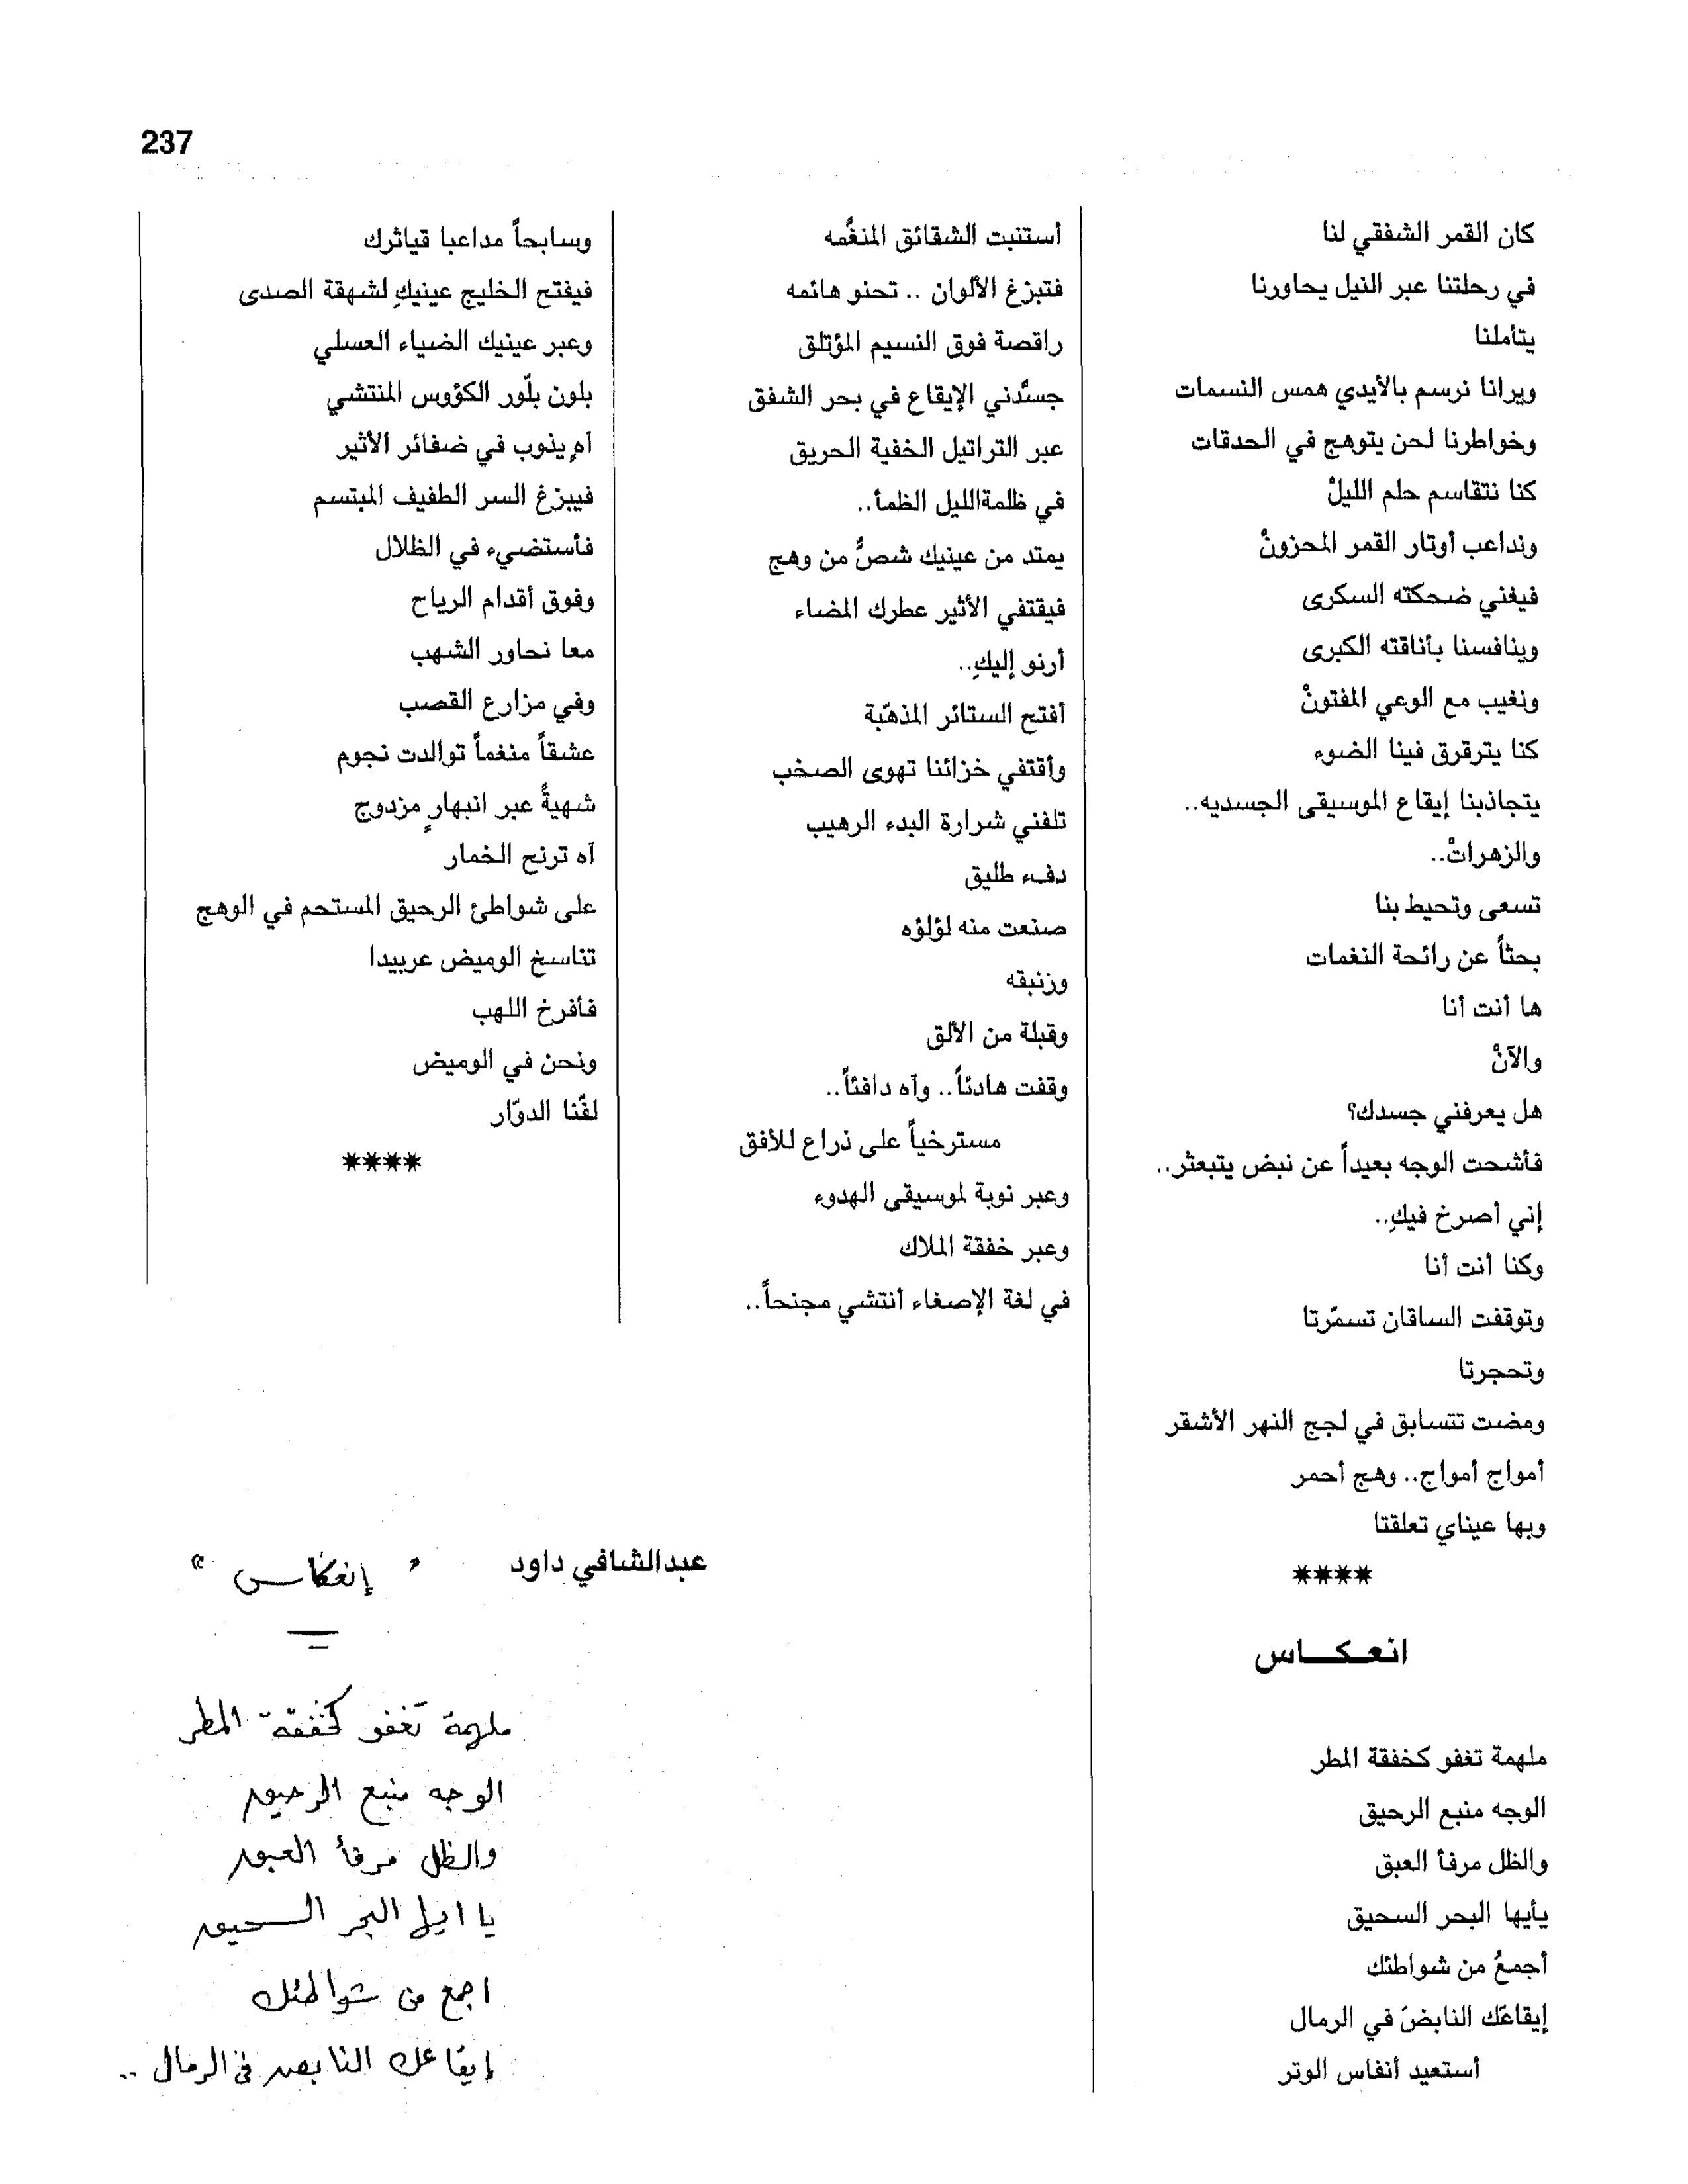 237
كان القمر الشفقي لنا
في رحلتنا عبر النيل يحاورنا
يتأملنا
ويرانا نرسم بالأيدي همس النسمات
وخواطرنا لحن يتوهج في الحدقات
كنا نتقاسم حلم الليلْ
ونداعب أوتار القمر المحزونْ
فيغني ضحكته السكرى
وينافسنا بأناقته الكبرى
ونغيب مع الوعي المفتونْ
كنا يترقرق فينا الضوء
يتجاذبنا إيقاع الموسيقى الجسديه..
والزهراتْ..
تسعى وتحيط بنا
بحثاً عن رائحة النغمات
ها أنت أنا
والآنْ
هل يعرفني جسدك؟
فأشحت الوجه بعيداً عن نبض يتبعثر..
إني أصرخ فيكِ..
وكنا أنت أنا
وتوقفت الساقان تسمّرتا
وتحجرتا
ومضت تتسابق في لجج النهر الأشقر
أمواج أمواج.. وهج أحمر
وبها عيناي تعلقتا
****
انعـكـــاس
ملهمة تغفو كخفقة المطر
الوجه منبع الرحيق
والظل مرفأ العبق
يأيها البحر السحيق
أجمعُ من شواطئك
إيقاعَك النابضَ في الرمال
أستعيد أنفاس الوتر
أستنبت الشقائق المنغَّمه
فتبزغ الألوان .. تحنو هائمه
راقصة فوق النسيم المؤتلق
جسَّدني الإيقاع في بحر الشفق
عبر التراتيل الخفية الحريق
في ظلمةالليل الظمأ..
يمتد من عينيك شصٌّ من وهج
فيقتفي الأثير عطرك المضاء
أرنو إليكِ..
أفتح الستائر المذهّبة
وأقتفي خزائنا تهوى الصخب
تلفني شرارة البدء الرهيب
دفء طليق
صنعت منه لؤلؤه
وزنبقه
وقبلة من الألق
وقفت هادئاً.. وآه دافئاً..
مسترخياً على ذراع للأفق
وعبر نوبة لموسيقى الهدوء
وعبر خفقة الملاك
في لغة الإصغاء أنتشي مجنحاً..
وسابحاً مداعبا قياثرك
فيفتح الخليج عينيكِ لشهقة الصدى
وعبر عينيك الضياء العسلي
بلون بلّور الكؤوس المنتشي
آهٍ يذوب في ضفائر الأثير
فيبزغ السر الطفيف المبتسم
فأستضيء في الظلال
وفوق أقدام الرياح
معا نحاور الشهب
وفي مزارع القصب
عشقاً منغماً توالدت نجوم
شهيةً عبر انبهارٍ مزدوج
آه ترنح الخمار
على شواطئ الرحيق المستحم في الوهج
تناسخ الوميض عربيدا
فأفرخ اللهب
ونحن في الوميض
لفّنا الدوّار
****
عبدالشافي داود
" إنعكاس "
ملهمة تغفو كخفقة المطر
الوجه منبع الرحيق
والظل مرفأ العبق
يا ايها البحر السحيق
اجمع من شواطئك
إيقاعك النابض في الرمال ..